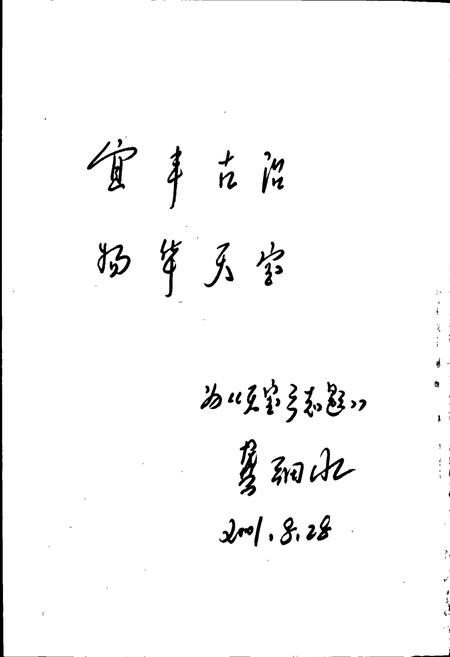 宜丰古治
物华天宝
为《天宝乡志》题
龚细水
2001.8.28